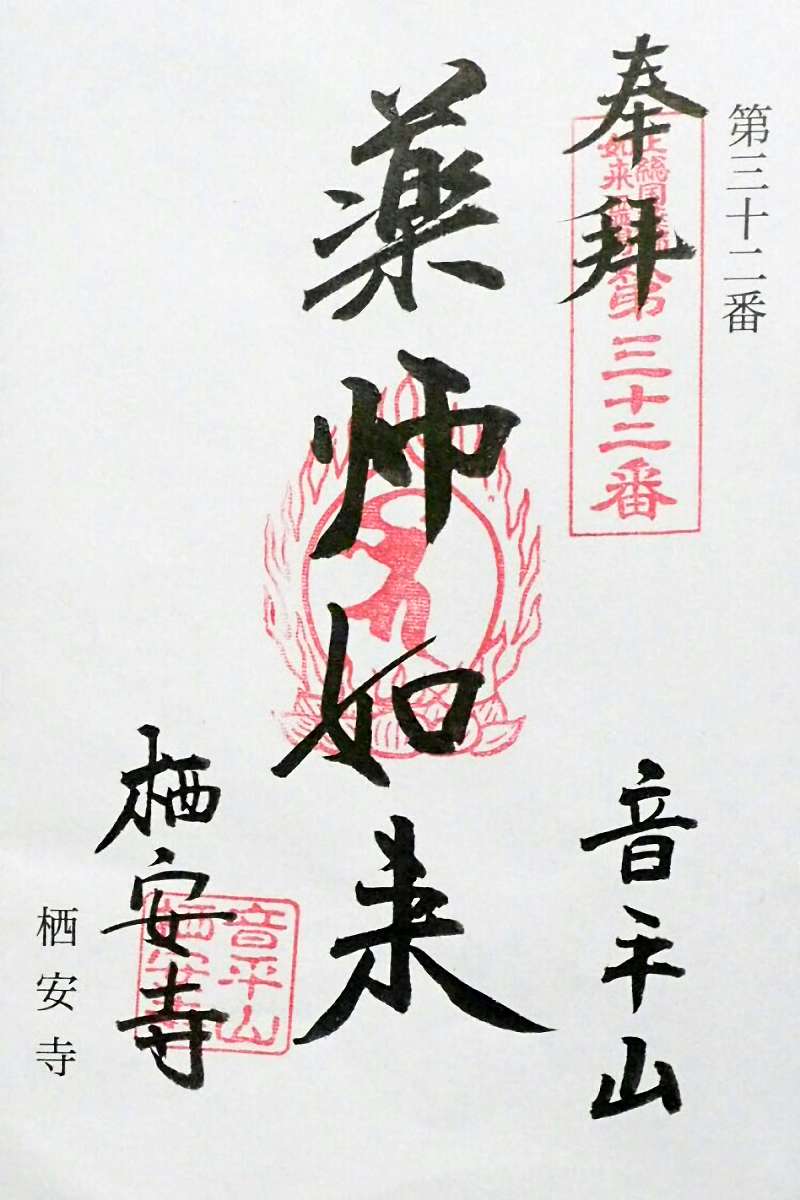 第三十二番
奉拝
第三十二番
音平山
薬师如来
栖安寺
音平山
栖安寺
栖安寺